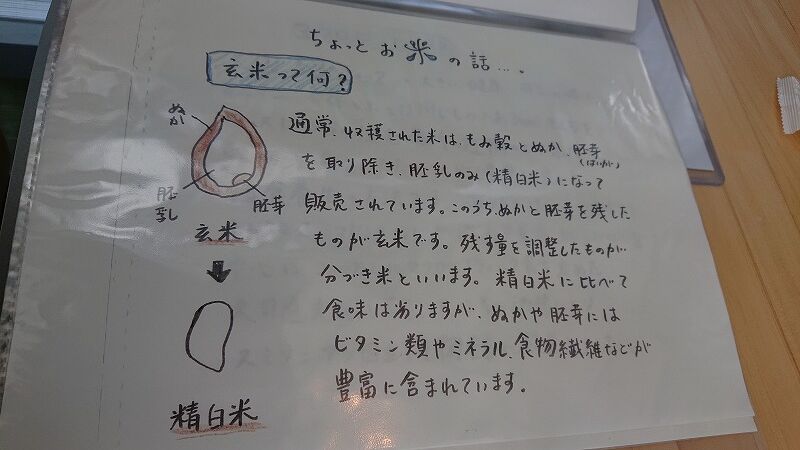 ちょっとお米の話…。
玄米って何?
ぬか
胚乳
胚芽
玄米
精白米
通常、収穫された米は、もみ殻とぬか、胚芽(はいが)
を取り除き、胚乳のみ(精白米)になって
販売されています。このうち、ぬかと胚芽を残した
ものが玄米です。残す量を調整したものが
分づき米といいます。精白米に比べて
食味は劣りますが、ぬかや胚芽には
ビタミン類やミネラル、食物繊維などが
豊富に含まれています。